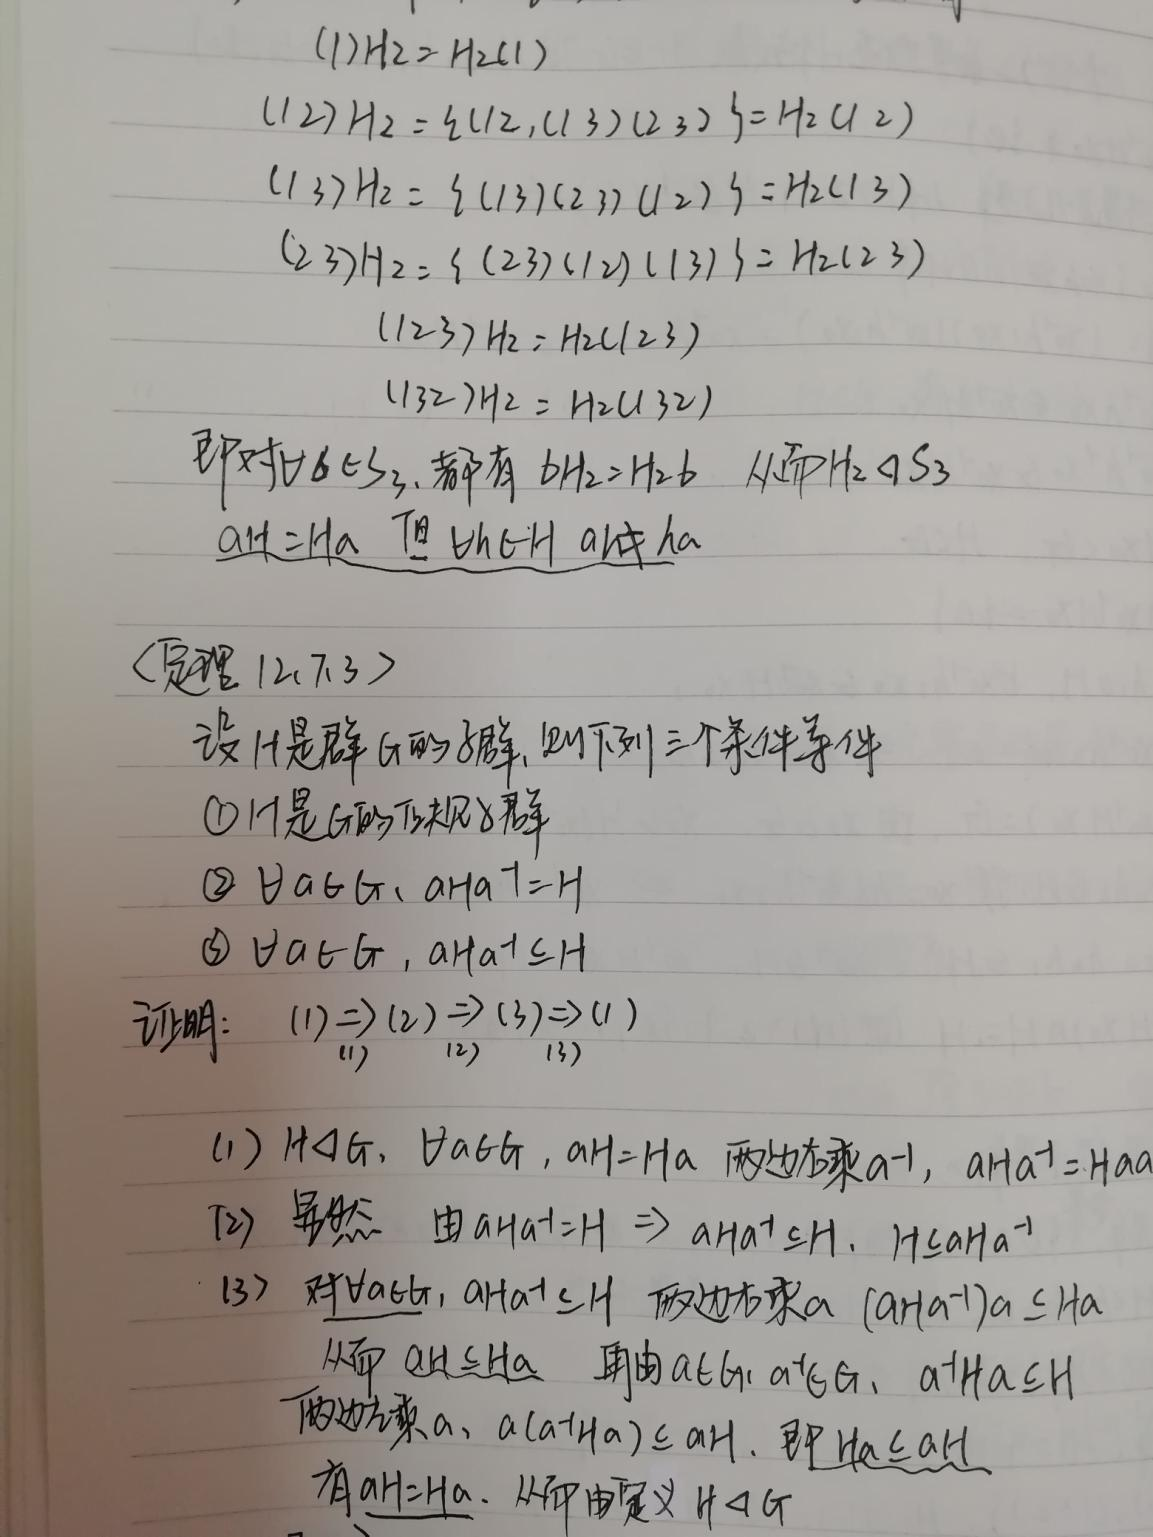 (1)H2=H2(1)
(12)H2={(12,(13)(23)}=H2(12)
(13)H2={(13)(23)(12)}=H2(13)
(23)H2={(23)(12)(13)}=H2(23)
(123)H2=H2(123)
(132)H2=H2(132)
即对∀6∈S3、都有 6H2=H26 从而H2◁S3
aH=Ha 但 ∀h∈H ah≠ha
<定理12.7.3>
设H是群G的子群,则下列三个条件等件
①H是G的正规子群
② ∀a∈G、aHa⁻¹=H
③ ∀a∈G,aHa⁻¹⊆H
证明: (1)⇒(2)⇒(3)⇒(1)
(1) (2) (3)
(1) H◁G、∀a∈G,aH=Ha 两边右乘a⁻¹,aHa⁻¹=Haa
(2) 显然 由aHa⁻¹=H ⇒ aHa⁻¹⊆H、H⊆aHa⁻¹
(3) 对∀a∈G,aHa⁻¹⊆H 两边右乘a (aHa⁻¹)a⊆Ha
从而 aH⊆Ha 再由a∈G,a⁻¹∈G、a⁻¹Ha⊆H
两边左乘a、a(a⁻¹Ha)⊆aH.即Ha⊆aH
有aH=Ha.从而由定义H◁G